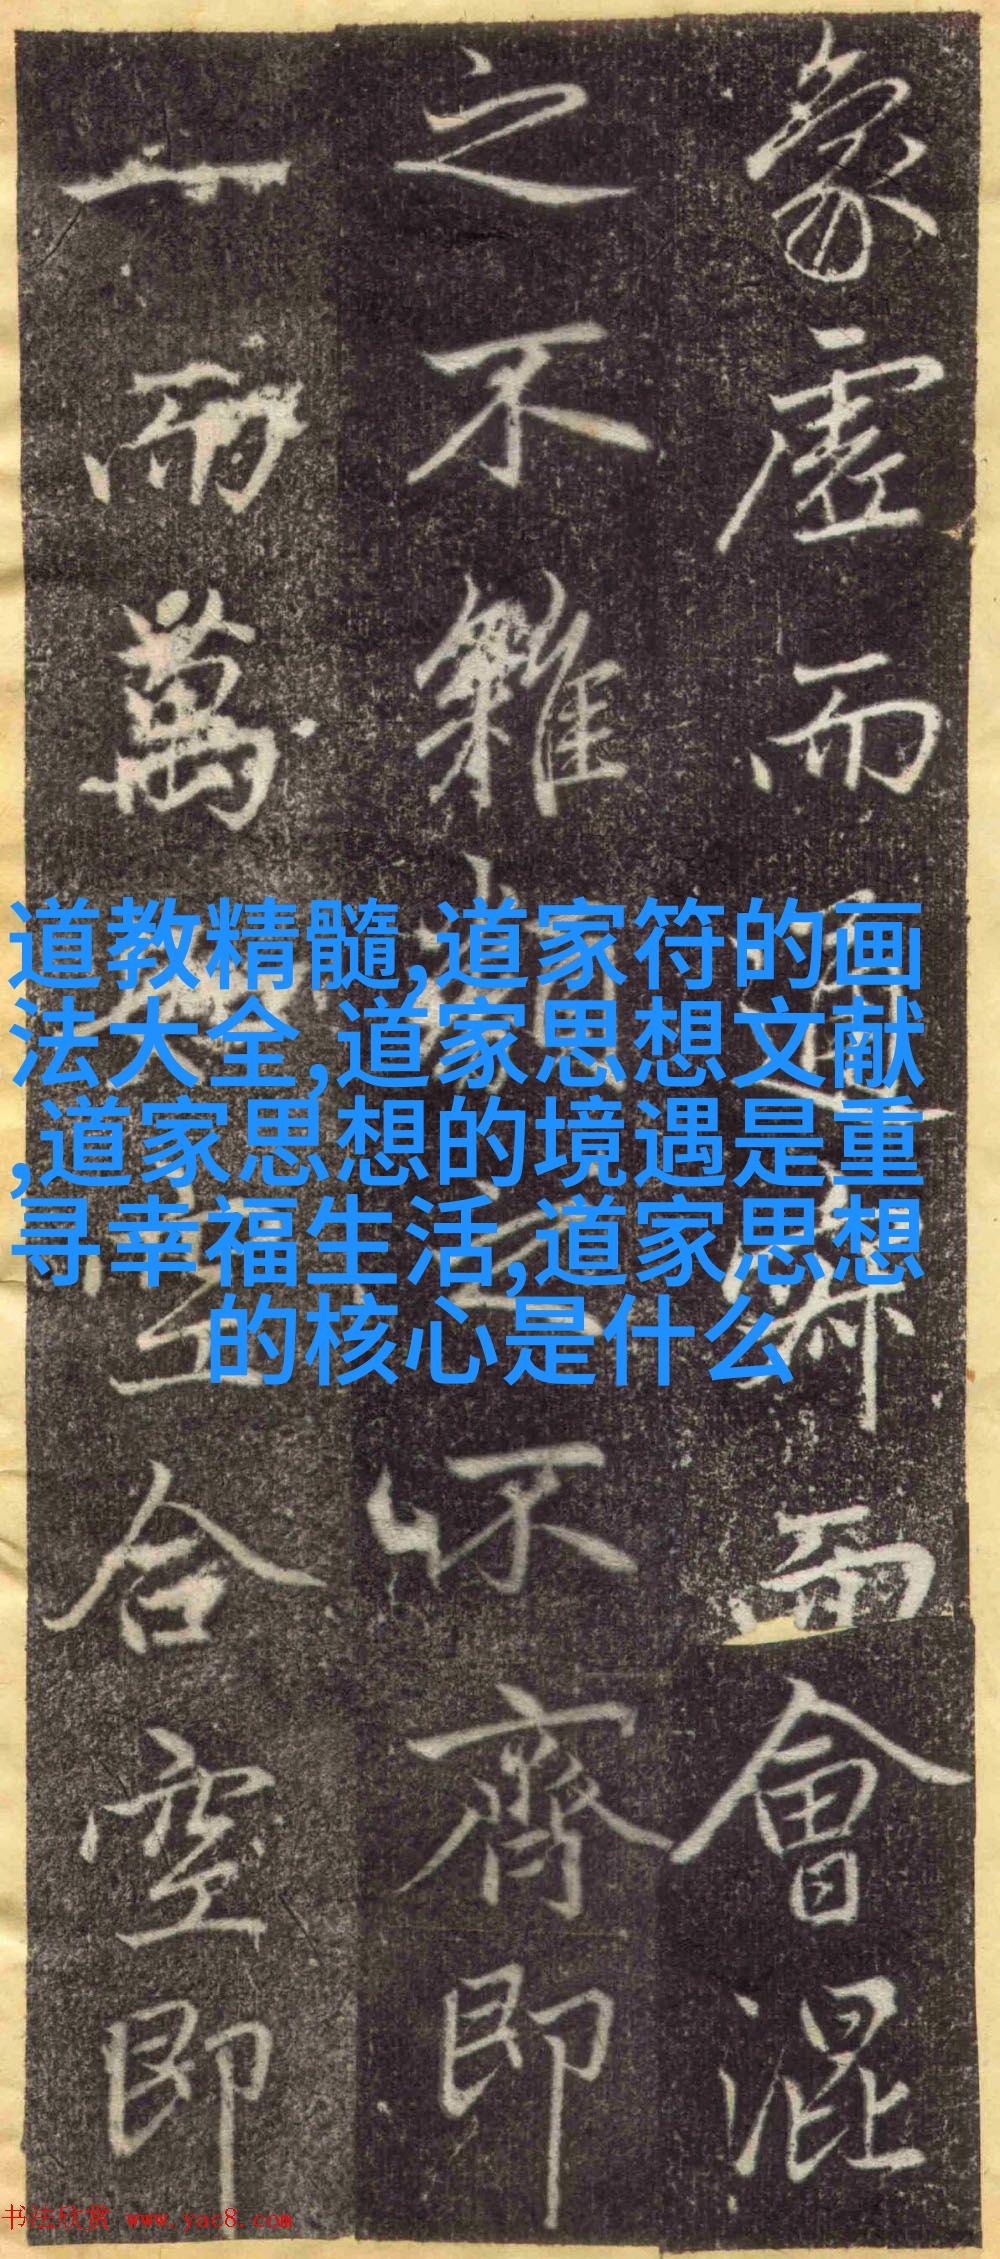 象虛而通解而會混
之不雜離之不齊即
一而萬
合空即
道教精髓,道家符的画
法大全,道家思想文献
,道家思想的境遇是重
寻幸福生活,道家思想
的核心是什么
书法欣赏 www.yac8.com